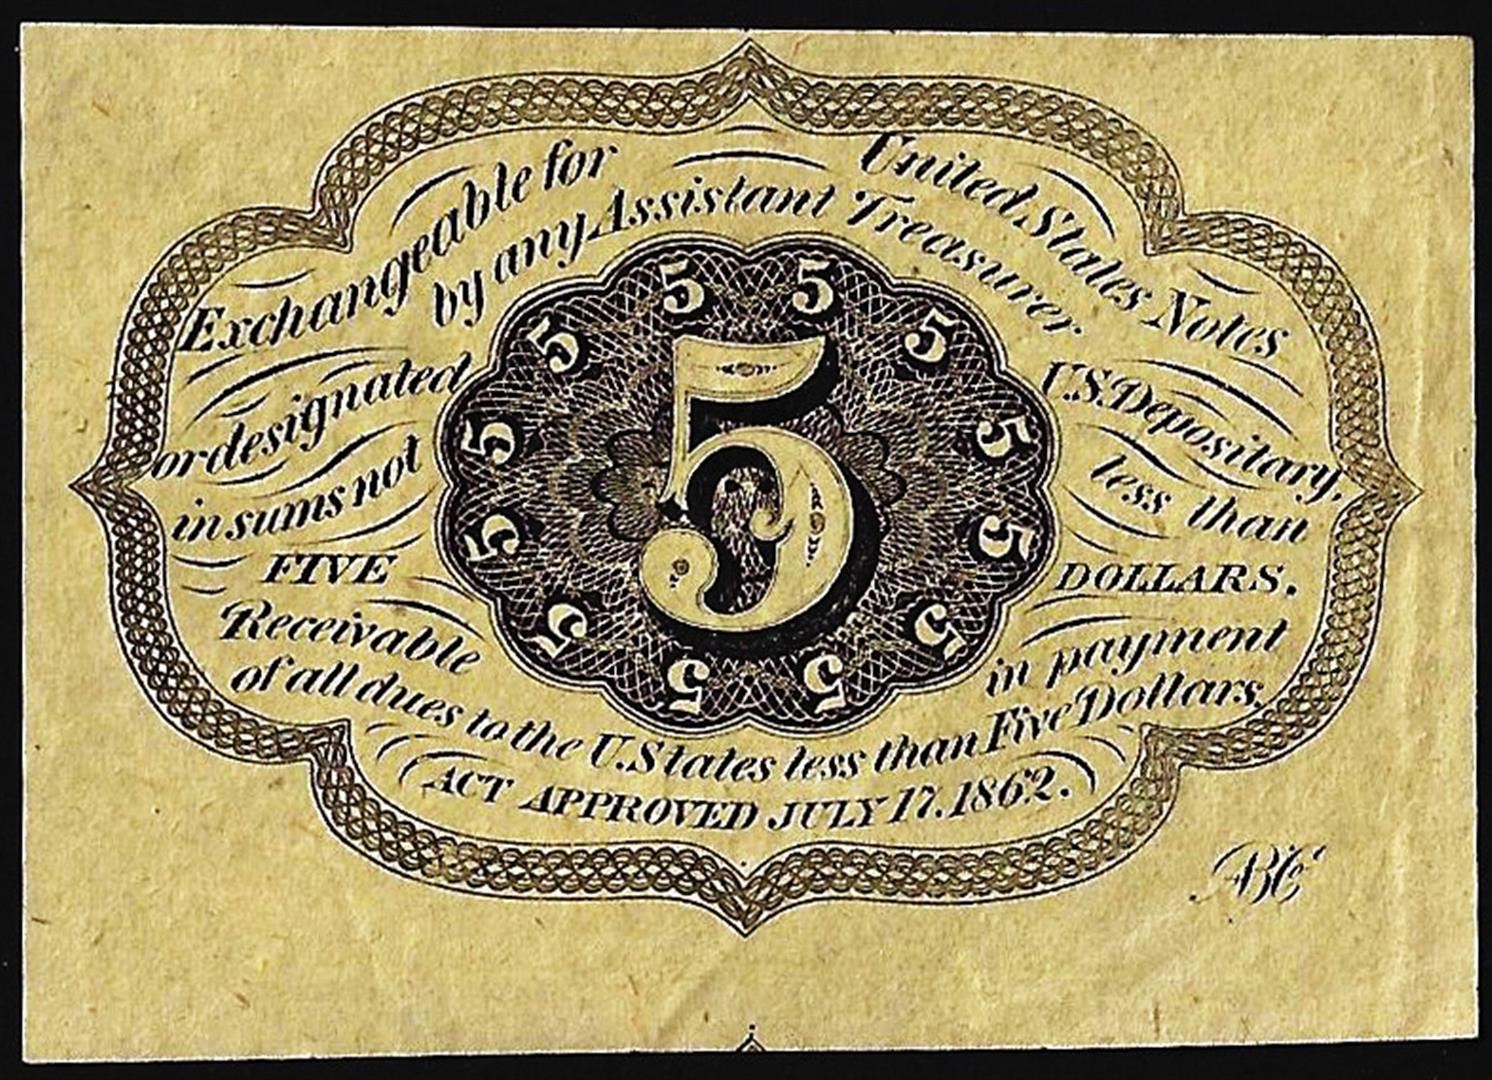 Exchangeable for United States Notes
by any Assistant Treasurer.
or designated U.S. Depositary,
in sums not less than
FIVE DOLLARS.
Receivable in payment
of all dues to the U. States less than Five Dollars.
ACT APPROVED JULY 17. 1862.
5
5 5
5 5
5 5
5 5
5 5
5 5
ABCo